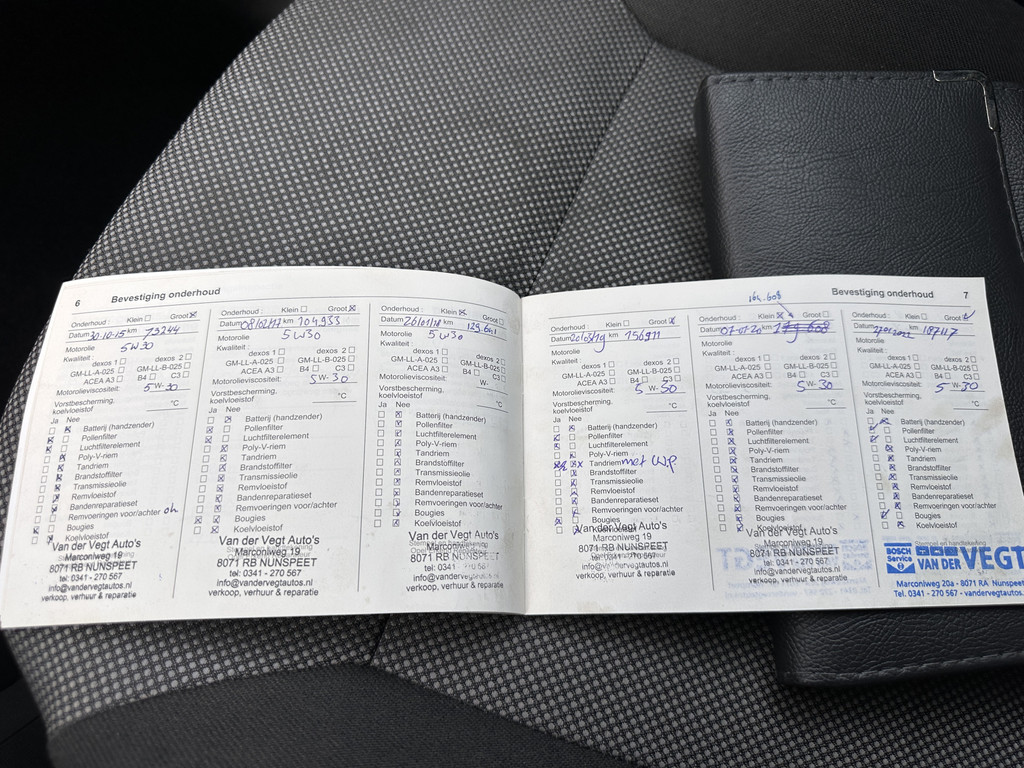 6 Bevestiging onderhoud
Onderhoud : Klein ☐ Groot ☒
Datum 30-10-15 km 79244
Motorolie 5W30
Kwaliteit : dexos 1 ☐ dexos 2 ☐
GM-LL-A-025 ☐ GM-LL-B-025 ☐
ACEA A3 ☐ B4 ☐ C3 ☐
Motorolieviscositeit: 5 W-30
Vorstbescherming,
koelvloeistof °C
Ja Nee
Batterij (handzender)
Pollenfilter
Luchtfilterelement
Poly-V-riem
Tandriem
Brandstoffilter
Transmissieolie
Remvloeistof
Bandenreparatieset
Remvoeringen voor/achter oh
Bougies
Koelvloeistof
Van der Vegt Auto's
Marconiweg 19
8071 RB NUNSPEET
tel: 0341 - 270 567
info@vandervegtautos.nl
verkoop, verhuur & reparatie
Onderhoud : Klein ☐ Groot ☒
Datum 08/02/17 km 104.933
Motorolie 5W30
Kwaliteit :
dexos 1 ☐ dexos 2 ☐
GM-LL-A-025 ☐ GM-LL-B-025 ☐
ACEA A3 ☐ B4 ☐ C3 ☐
Motorolieviscositeit: 5W-30
Vorstbescherming,
koelvloeistof °C
Ja Nee
Batterij (handzender)
Pollenfilter
Luchtfilterelement
Poly-V-riem
Tandriem
Brandstoffilter
Transmissieolie
Remvloeistof
Bandenreparatieset
Remvoeringen voor/achter
Bougies
Koelvloeistof
Van der Vegt Auto's
Marconiweg 19
8071 RB NUNSPEET
tel: 0341 - 270 567
info@vandervegtautos.nl
verkoop, verhuur & reparatie
Onderhoud : Klein ☒ Groot ☐
Datum 26/01/18 km 129.641
Motorolie 5W30
Kwaliteit :
dexos 1 ☐ dexos 2 ☐
GM-LL-A-025 ☐ GM-LL-B-025 ☐
ACEA A3 ☐ B4 ☐ C3 ☐
Motorolieviscositeit: W-
Vorstbescherming,
koelvloeistof °C
Ja Nee
Batterij (handzender)
Pollenfilter
Luchtfilterelement
Poly-V-riem
Tandriem
Brandstoffilter
Transmissieolie
Remvloeistof
Bandenreparatieset
Remvoeringen voor/achter
Bougies
Koelvloeistof
Van der Vegt Auto's
Marconiweg
8071 RB NUNSPEET
tel: 0341
info@vandervegtautos.nl
verkoop, verhuur & reparatie
Bevestiging onderhoud 7
Onderhoud : Klein ☐ Groot ☒
km 156911
Motorolie
Kwaliteit :
dexos 1 ☐ dexos 2 ☐
GM-LL-A-025 ☐ GM-LL-B-025 ☐
ACEA A3 ☐ B4 ☐ C3
Motorolieviscositeit: 5 W-
Vorstbescherming,
koelvloeistof °C
Ja Nee
Batterij (handzender)
Pollenfilter
Luchtfilterelement
Poly-V-riem
Tandriem met W.P
Brandstoffilter
Transmissieolie
Remvloeistof
Bandenreparatieset
Remvoeringen voor/achter
Bougies
Van der Vegt Auto's
Marconiweg 19
8071 RB NUNSPEET
tel: 0341 - 270 567
info@vandervegtautos.nl
verkoop, verhuur & reparatie
164.608
Onderhoud : Klein ☒ Groot ☐
Datum 07-01-20 km
Motorolie
Kwaliteit :
dexos 1 ☐ dexos 2 ☐
GM-LL-A-025 ☐ GM-LL-B-025 ☐
ACEA A3 ☐ B4 ☐ C3 ☐
Motorolieviscositeit: 5 W-30
Vorstbescherming,
koelvloeistof °C
Ja Nee
Batterij (handzender)
Pollenfilter
Luchtfilterelement
Poly-V-riem
Tandriem
Brandstoffilter
Transmissieolie
Remvloeistof
Bandenreparatieset
Remvoeringen voor/achter
Bougies
Koelvloeistof
Van der Vegt Auto's
Marconiweg 19
8071 RB NUNSPEET
tel: 0341 - 270 567
info@vandervegtautos.nl
verkoop, verhuur & reparatie
Onderhoud : Klein ☐ Groot ☑
Datum km
Motorolie
Kwaliteit :
dexos 1 ☐ dexos 2 ☐
GM-LL-A-025 ☐ GM-LL-B-025 ☐
ACEA A3 ☐ B4 ☐ C3 ☐
Motorolieviscositeit: 5 W-30
Vorstbescherming,
koelvloeistof °C
Ja Nee
Batterij (handzender)
Pollenfilter
Luchtfilterelement
Poly-V-riem
Tandriem
Brandstoffilter
Transmissieolie
Remvloeistof
Bandenreparatieset
Remvoeringen voor/achter
Bougies
Koelvloeistof
BOSCH
Service
VAN DER VEGT
Marconiweg 20a - 8071 RA Nunspeet
Tel. 0341 - 270 567 - vandervegtautos.